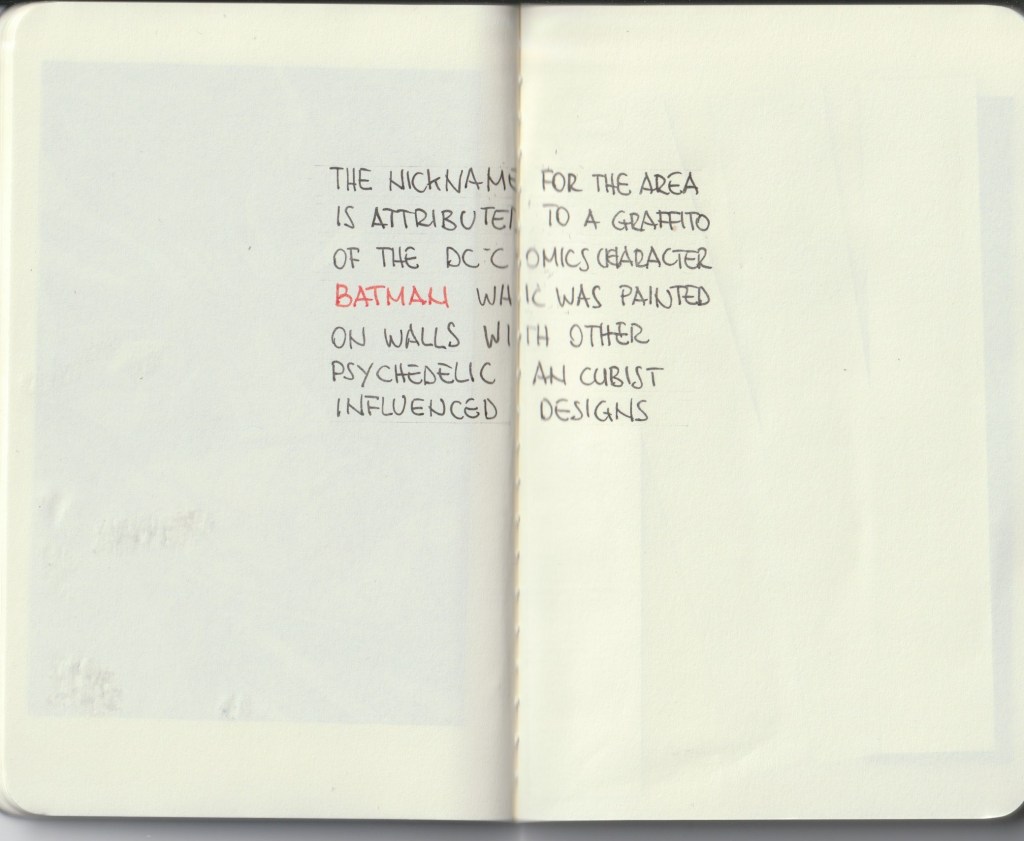 THE NICKNAME FOR THE AREA
IS ATTRIBUTED TO A GRAFFITO
OF THE DC-COMICS CHARACTER
BATMAN WHIC WAS PAINTED
ON WALLS WITH OTHER
PSYCHEDELIC AN CUBIST
INFLUENCED DESIGNS